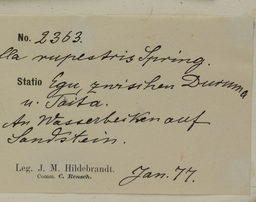 No. 2363.
lla rupestris Spring.
Statio Egu, zwischen Duruma
u. Taita.
An Wasserbecken auf
Sandstein.
Leg. J. M. Hildebrandt.
Comm. C. Rensch.
Jan. 77.